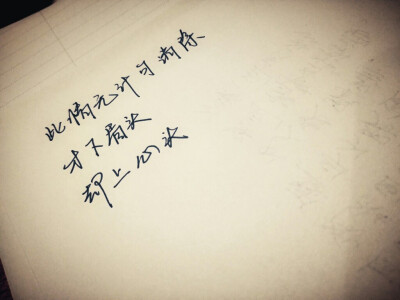 此情无计可消除
才下眉头
却上心头